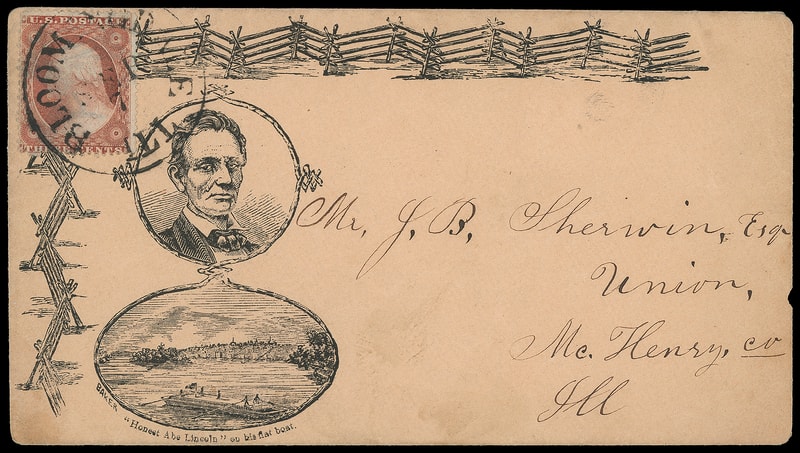 U.S. POSTAGE
THREE CENTS
BLOOM
ILL
Mr, J. B. Sherwin, Esq
Union,
Mc. Henry, co
Ill
BAKER
"Honest Abe Lincoln" on his flat boat.